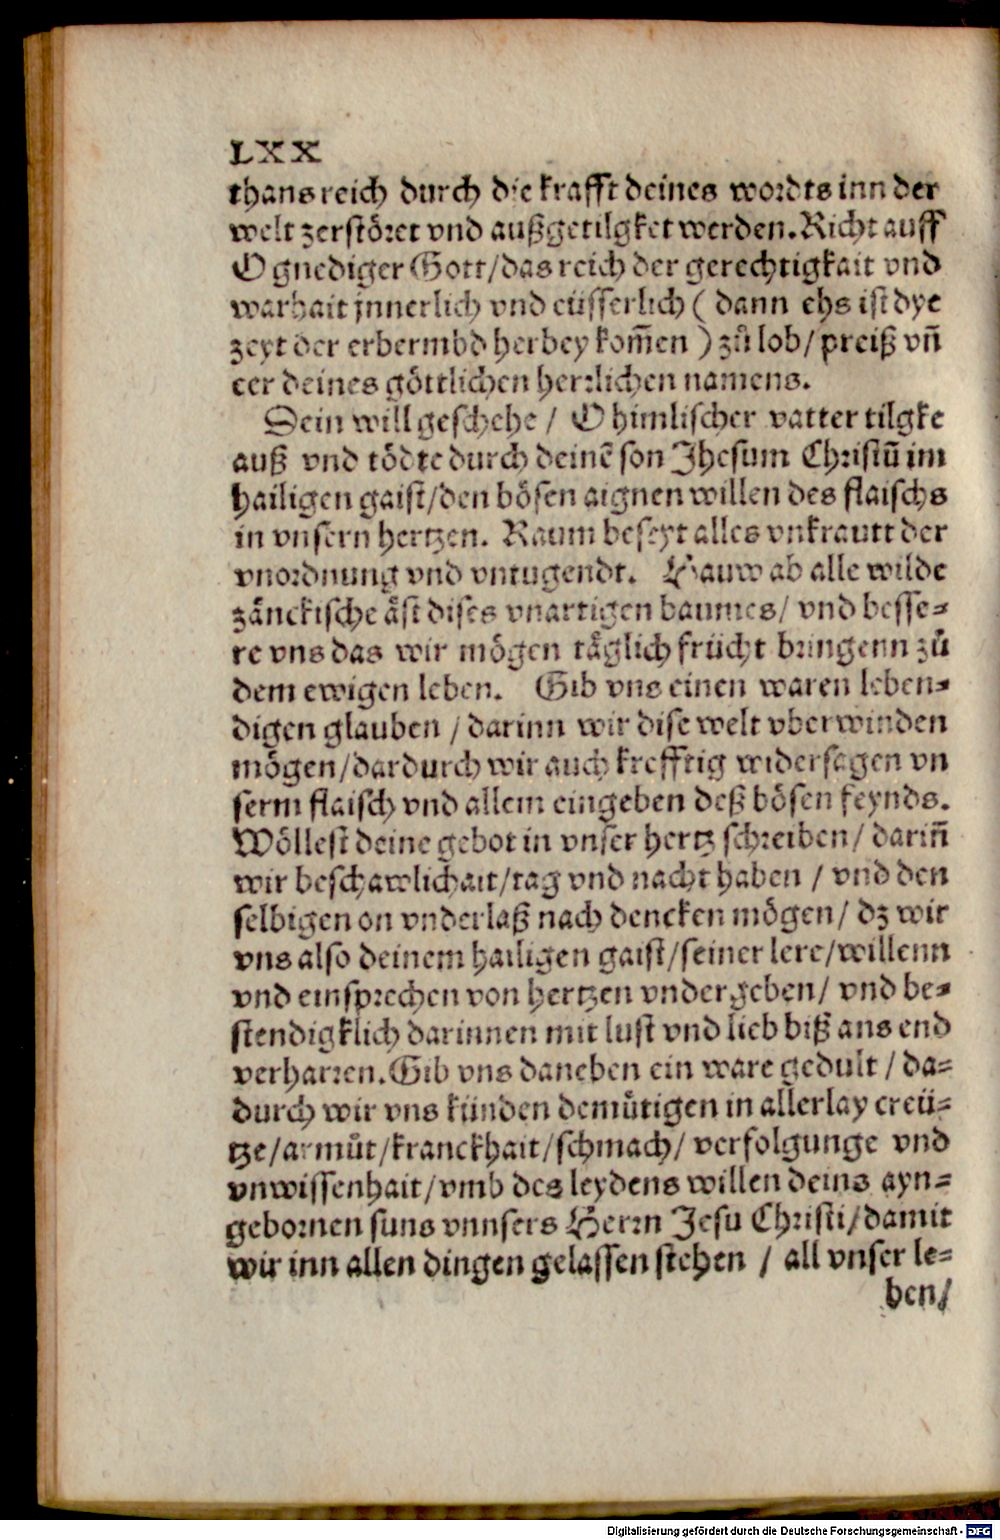 LXX
thans reich durch die krafft deines wordts inn der
welt zerstöret vnd außgetilgket werden. Richt auff
O gnediger Gott/ das reich der gerechtigkait vnd
warhait jnnerlich vnd eüsserlich ( dann ehs ist dye
zeyt der erbermbd herbey kom̃en ) zů lob/ preiß vñ
eer deines göttlichen herrlichen namens.
Dein will geschehe / O himlischer vatter tilgke
auß vnd tödte durch deinẽ son Jhesum Christũ im
hailigen gaist/ den bösen aignen willen des flaischs
in vnsern hertzen. Raum beseyt alles vnkrautt der
vnordnung vnd vntugendt. Hauw ab alle wilde
zänckische äst dises vnartigen baumes/ vnd besse⸗
re vns das wir mögen täglich frücht bringenn zů
dem ewigen leben. Gib vns einen waren leben⸗
digen glauben / darinn wir dise welt vberwinden
mögen/ dardurch wir auch krefftig widersagen vn
serm flaisch vnd allem eingeben deß bösen feynds.
Wöllest deine gebot in vnser hertz schreiben/ dariñ
wir beschawlichait/ tag vnd nacht haben / vnd den
selbigen on vnderlaß nach dencken mögen/ dz wir
vns also deinem hailigen gaist/ seiner lere/ willenn
vnd einsprechen von hertzen vndergeben/ vnd be⸗
stendigklich darinnen mit lust vnd lieb biß ans end
verharren. Gib vns daneben ein ware gedult / da⸗
durch wir vns künden demůtigen in allerlay creü⸗
tze/ armůt/ kranckhait/ schmach/ verfolgunge vnd
vnwissenhait/ vmb des leydens willen deins ayn⸗
gebornen suns vnnsers Herrn Jesu Christi/ damit
wir inn allen dingen gelassen stehen / all vnser le⸗
ben/
Digitalisierung gefördert durch die Deutsche Forschungsgemeinschaft - DFG